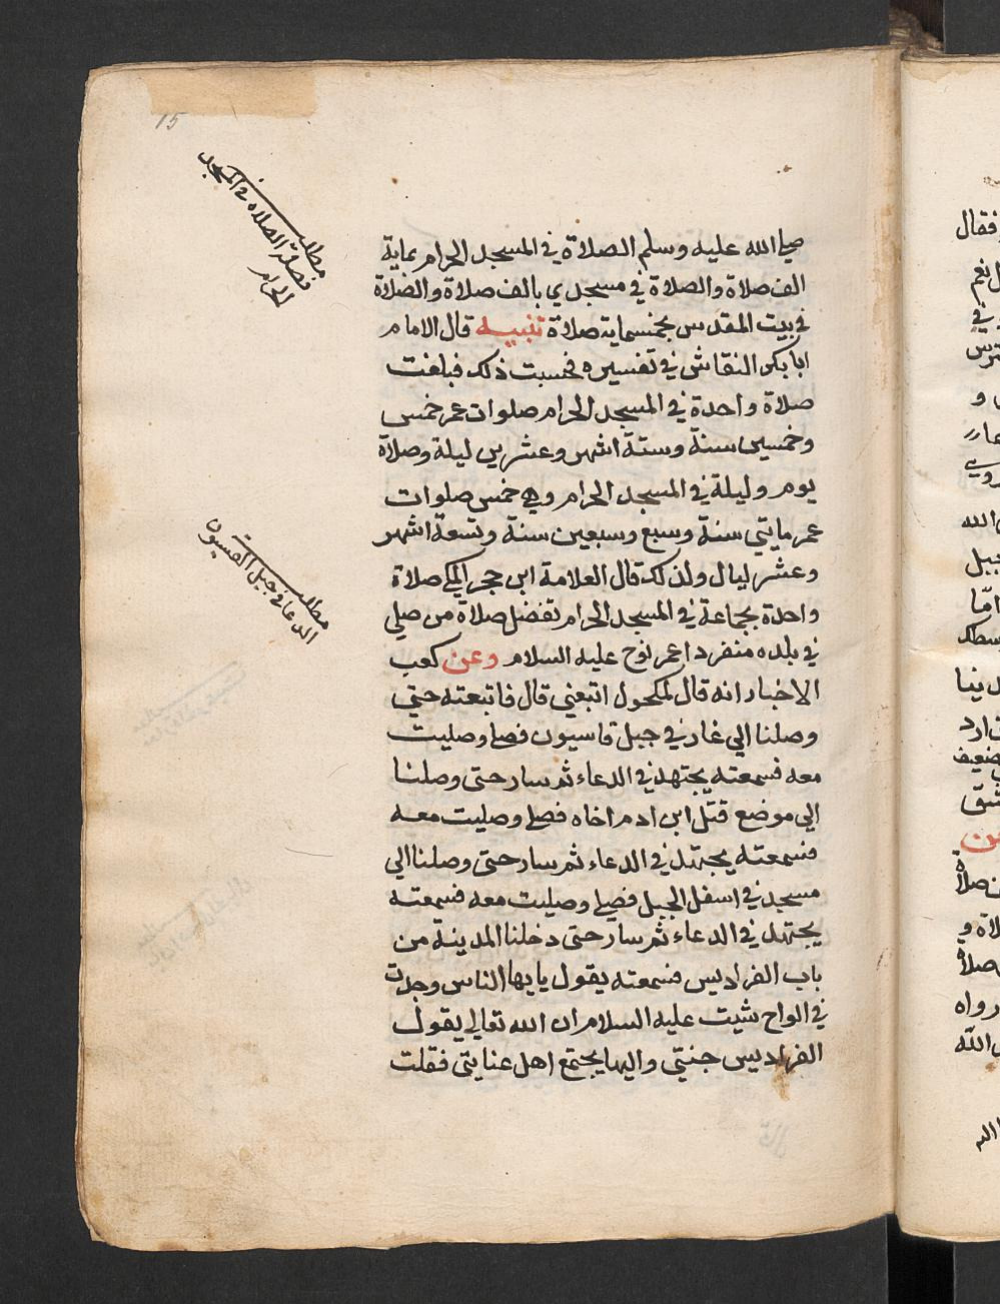 15
مطلب
فضل الصلاة في المسجد
الحرام
صلى الله عليه وسلم الصلاة في المسجد الحرام بماية
الف صلاة والصلاة في مسجدي بالف صلاة والصلاة
في بيت المقدس بخمسماية صلاة تنبيه قال الامام
ابا بكر النقاش في تفسيره فحسبت ذلك فبلغت
صلاة واحدة في المسجد الحرام صلوات عمر خمس
وخمسين سنة وستة اشهر وعشرين ليلة وصلاة
يوم وليلة في المسجد الحرام وهي خمس صلوات
عمر مايتي سنة وسبع وسبعين سنة وتسعة اشهر
وعشر ليال ولذلك قال العلامة ابن حجر المكي صلاة
واحدة بجماعة في المسجد الحرام تفضل صلاة من صلي
في بلده منفردا عمر نوح عليه السلام وعن كعب
الاخبار انه قال لمكحول اتبعني قال فاتبعته حتي
وصلنا الي غار في جبل قاسيون فصلي وصليت
معه فسمعته يجتهد في الدعاء ثم سار حتى وصلنا
الي موضع قتل ابن ادم اخاه فصلي وصليت معه
فسمعته يجتهد في الدعاء ثم سار حتى وصلنا الي
مسجد في اسفل الجبل فصلي وصليت معه فسمعته
يجتهد في الدعاء ثم سار حتى دخلنا المدينة من
باب الفراديس فسمعته يقول يايها الناس وجدت
في الواح شيت عليه السلام ان الله تعالي يقول
الفراديس جنتي واليها يجتمع اهل عنايتي فقلت
مطلب
الدعا في جبل القسيون